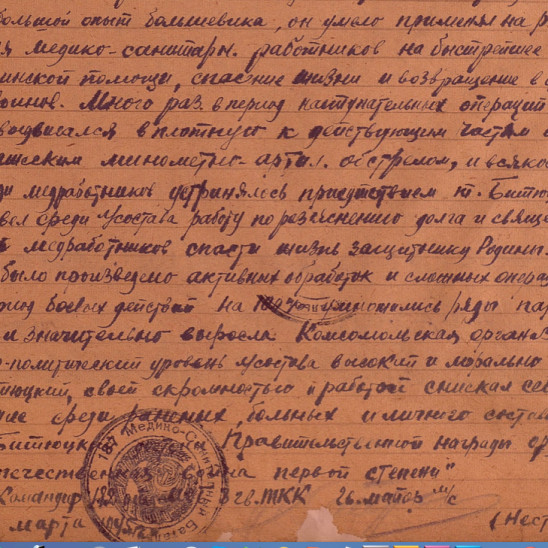 большой опыт большевика, он умело применял на р
я медико-санитарн. работников на быстрейшее
инской помощи, спасение жизни и возвращение в
воинов. Много раз в период наступательных операций
выдвигался вплотную к действующим частям
минометно-арт. обстрелом, и всяко
медработников устранялось присутствием т. Битюц
вел среди л/состава работу по разъяснению долга и свяще
медработников спасти жизнь защитнику Родины.
было произведено активных обработок и сложных опера
риод боевых действий на приумножились ряды пар
и значительно выросла Комсомольская органи
о-политический уровень л/состава высокий и морально
тюцкий, своей скромностью и работой снискал себ
ние среди раненых, больных и личного соста
Битюцк Правительственной награды ор
течественная война первой степени"
Командир 3 гв. ТКК гв. майор м/с
марта (Нест
187 Медико-Сани